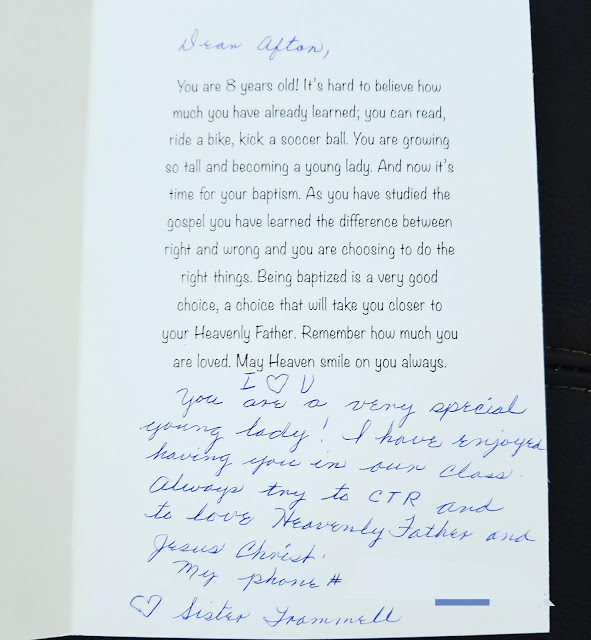 Dear Afton,
You are 8 years old! It's hard to believe how
much you have already learned; you can read,
ride a bike, kick a soccer ball. You are growing
so tall and becoming a young lady. And now it's
time for your baptism. As you have studied the
gospel you have learned the difference between
right and wrong and you are choosing to do the
right things. Being baptized is a very good
choice, a choice that will take you closer to
your Heavenly Father. Remember how much you
are loved. May Heaven smile on you always.
I ♡ U
You are a very special
young lady! I have enjoyed
having you in our class.
Always try to CTR and
to love Heavenly Father and
Jesus Christ.
My phone #
♡ Sister Trammell